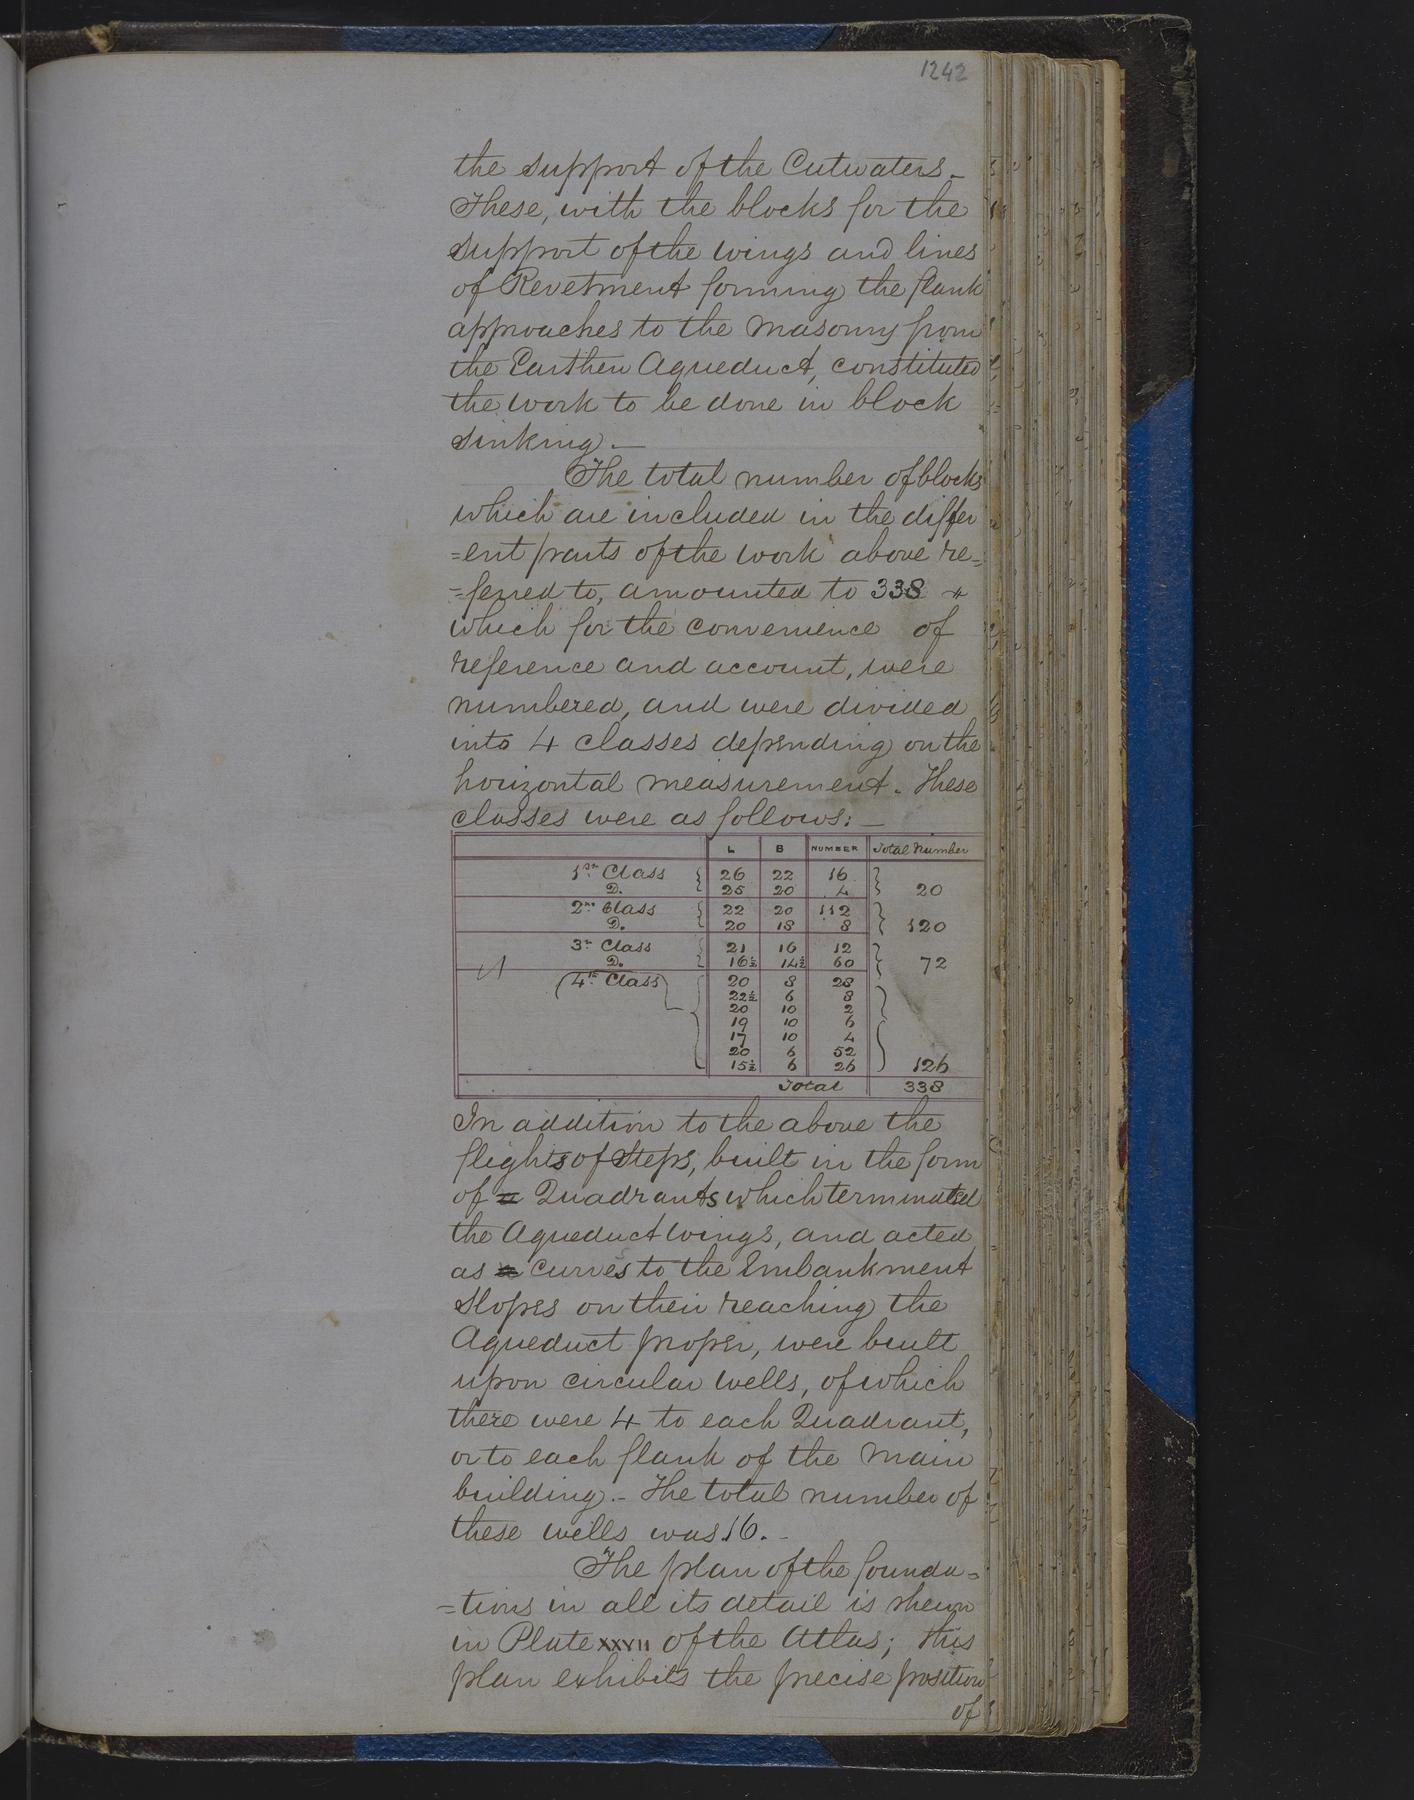 1242
the support of the Cutwaters. _
These, with the blocks for the
support of the wings and lines
of Revetment forming the flank
approaches to the masonry from
the Earthen Aqueduct, constituted
the work to be done in block
sinking. _
The total number of blocks
which are included in the differ
=ent parts of the work above re=
=ferred to, amounted to 338 &
which for the convenience of
reference and account, were
numbered, and were divided
into 4 classes depending on the
horizontal measurement. These
classes were as follows: _
L B NUMBER Total Number
1st Class 26 22 16
D. 25 20 4 20
2nd Class 22 20 112
D. 20 18 8 120
3rd Class 21 16 12
D. 16½ 14½ 60 72
4th Class 20 8 28
22½ 6 8
20 10 2
19 10 6
17 10 4
20 6 52
15½ 6 26 126
Total 338
In addition to the above the
flights of steps, built in the form
of a Quadrants which terminated
the Aqueduct wings, and acted
as a curves to the Embankment
slopes on their reaching the
Aqueduct proper, were built
upon circular wells, of which
there were 4 to each Quadrant,
or to each flank of the main
building. - The total number of
these wells was 16. -
The plan of the founda=
=tions in all its detail is shewn
in Plate XXVII of the Atlas; this
plan exhibits the precise position
of